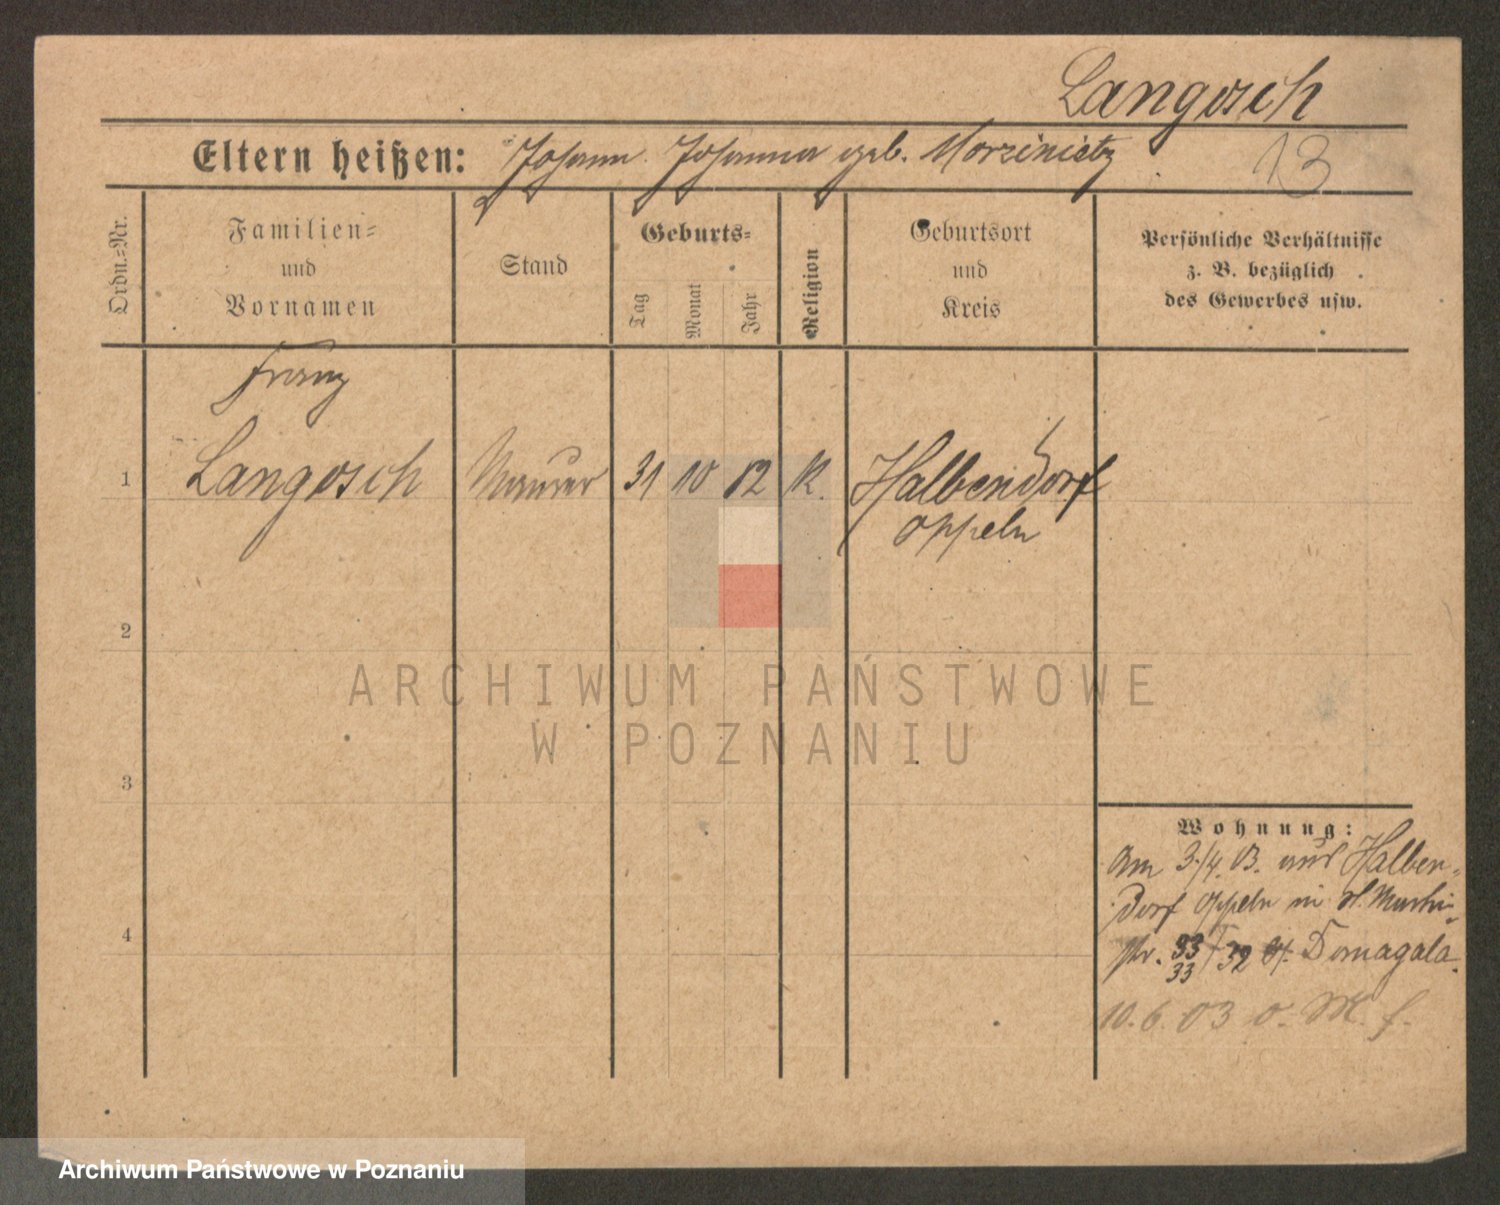 Langosch
Eltern heißen: Johann. Johanna geb. Morzinietz
13
Ordn.-Nr.
Familien-
und
Vornamen
Stand
Geburts-
Tag
Monat
Jahr
Religion
Geburtsort
und
Kreis
Persönliche Verhältnisse
z. B. bezüglich
des Gewerbes usw.
Franz
1 Langosch Maurer 31 10 82 K. Halbendorf
Oppeln
2
ARCHIWUM PAŃSTWOWE
W POZNANIU
3
Wohnung:
Am 3./4. 03. aus Halben-
dorf Oppeln in St. Martin-
4
str. 33 32 Domagala.
33
10. 6. 03 o. M. f.
Archiwum Państwowe w Poznaniu